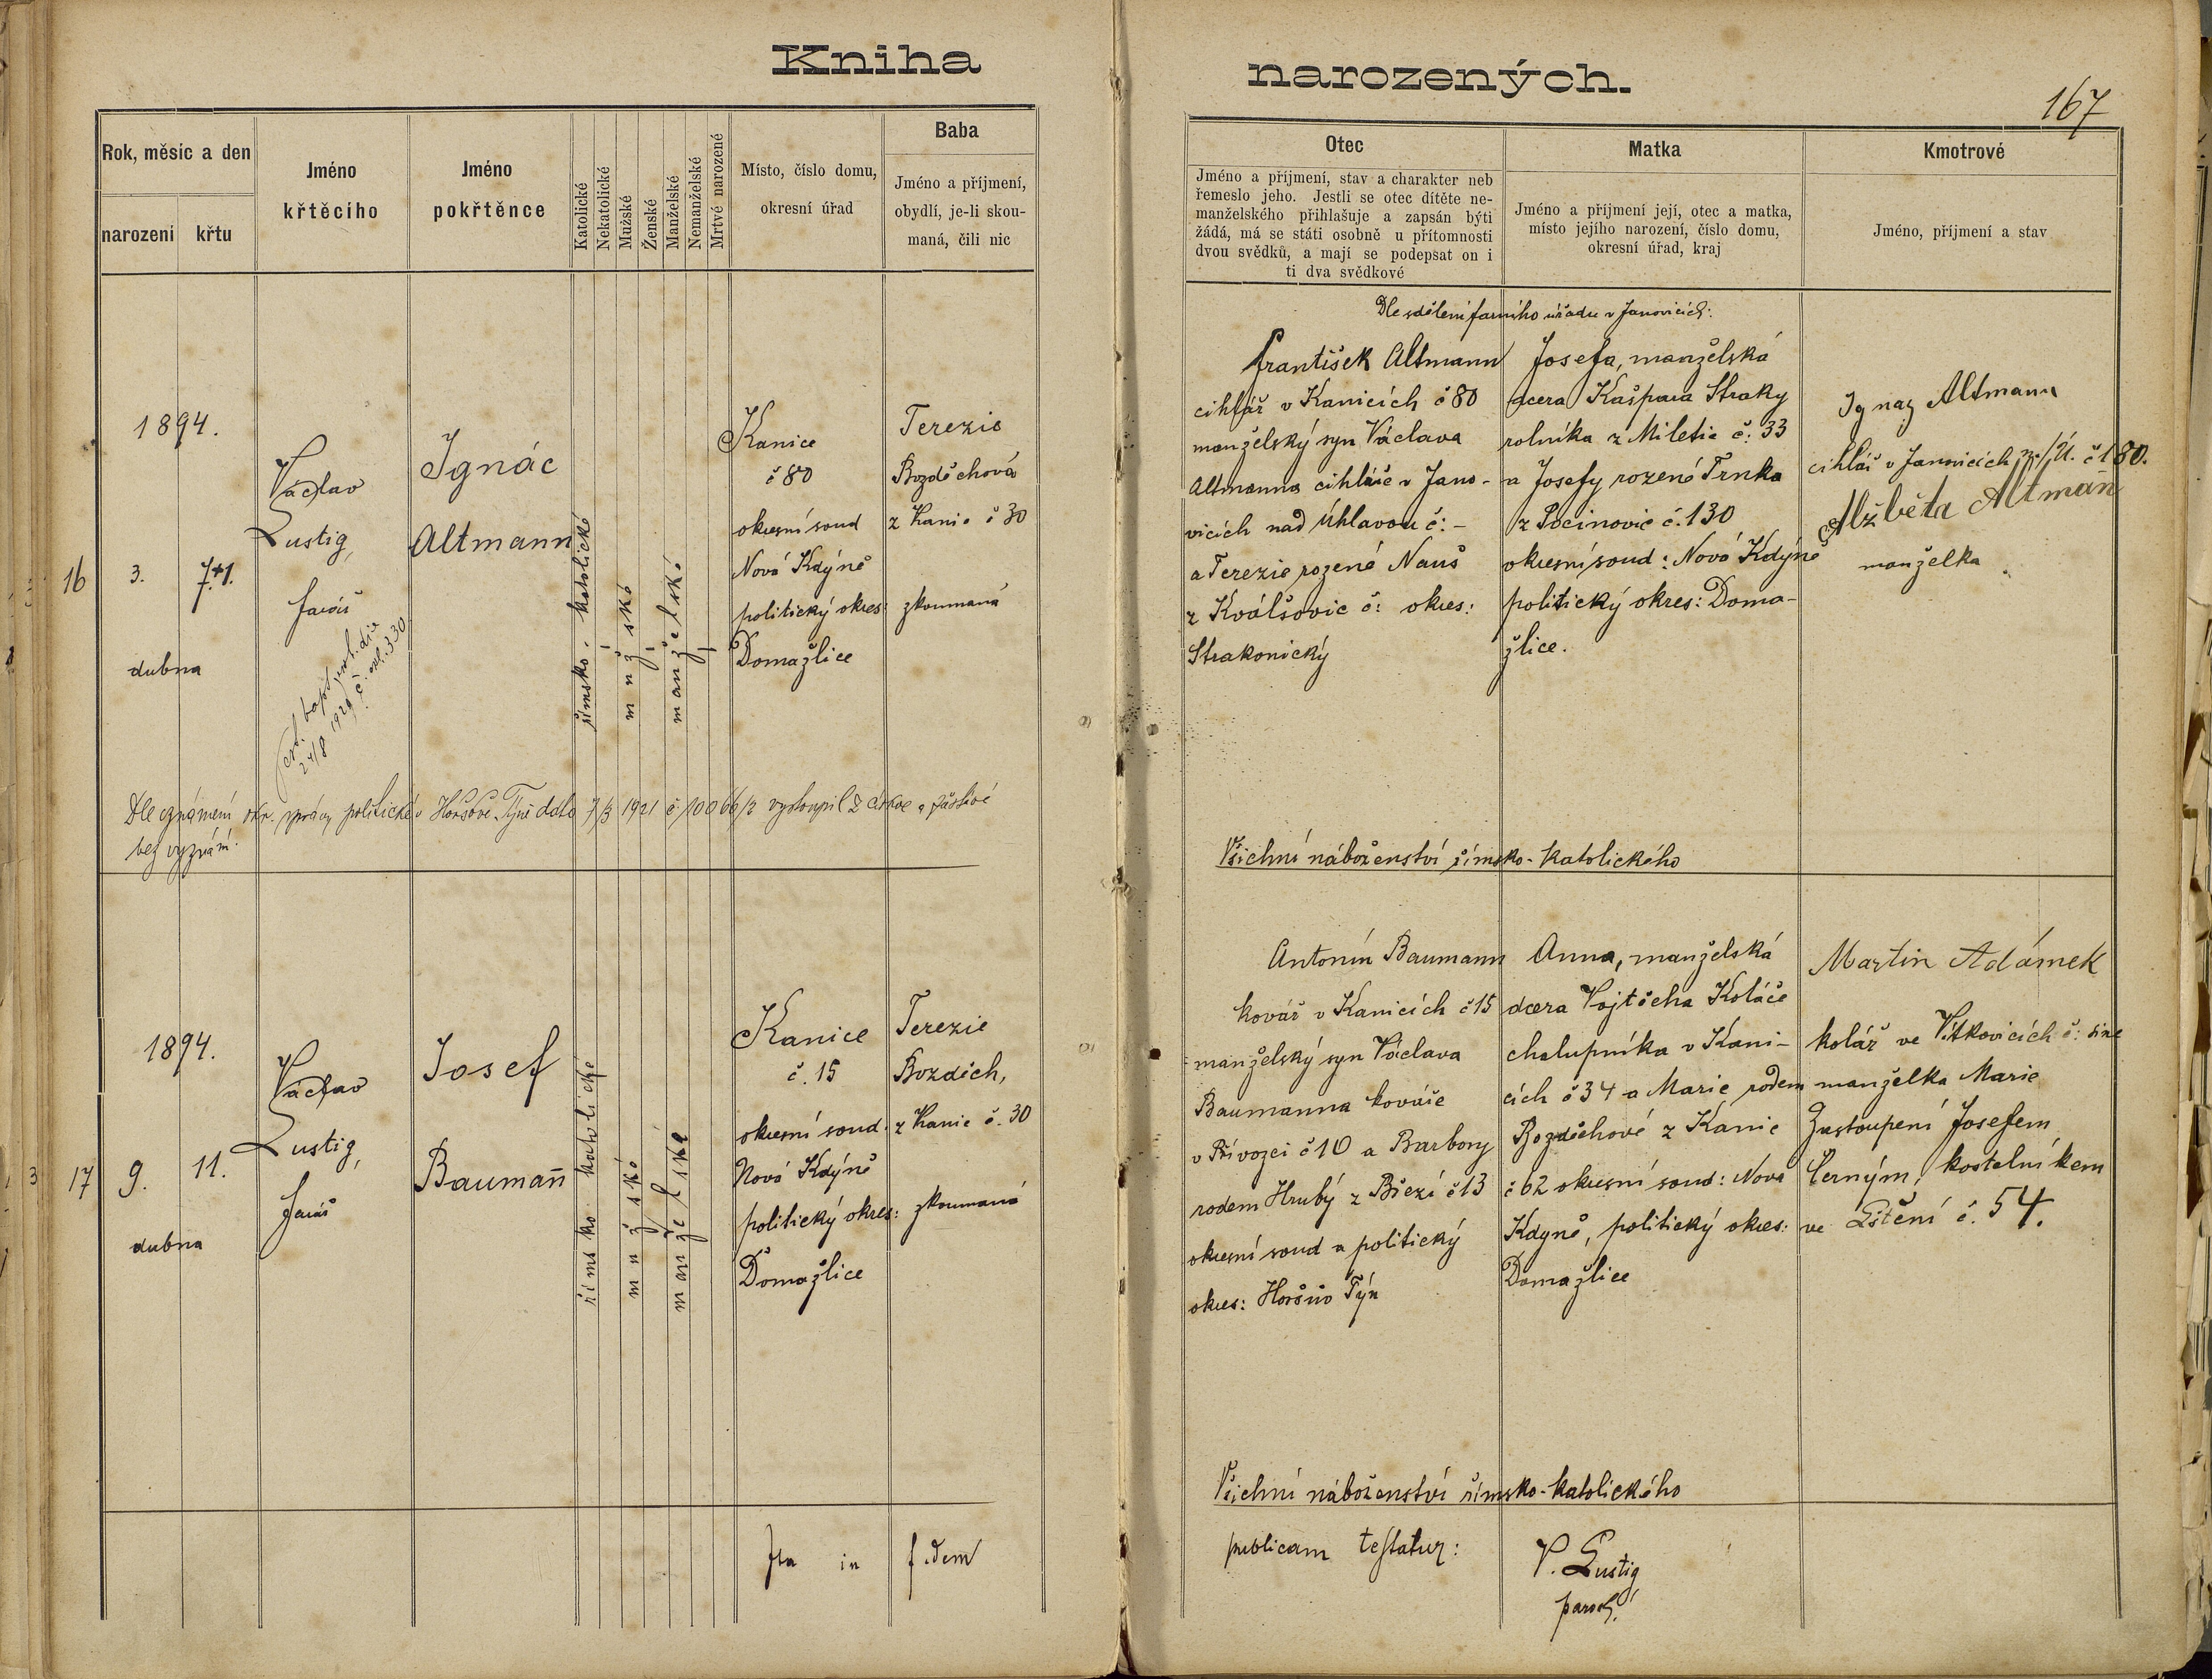 Kniha narozených.
167
Rok, měsíc a den
narození
křtu
Jméno
křtěcího
Jméno
pokřtěnce
Katolické
Nekatolické
Mužské
Ženské
Manželské
Nemanželské
Mrtvé narozené
Místo, číslo domu,
okresní úřad
Baba
Jméno a příjmení,
obydlí, je-li skou-
maná, čili nic
Otec
Jméno a příjmení, stav a charakter neb
řemeslo jeho. Jestli se otec dítěte ne-
manželského přihlašuje a zapsán býti
žádá, má se státi osobně u přítomnosti
dvou svědků, a mají se podepsat on i
ti dva svědkové
Matka
Jméno a příjmení její, otec a matka,
místo jejího narození, číslo domu,
okresní úřad, kraj
Kmotrové
Jméno, příjmení a stav
16
1894.
3.
7.
dubna
Václav
Lustig,
farář
Ignác
Altmann
římsko-katolické
mužské
manželské
Kanice
č 80
okresní soud
Nová Kdýně
politický okres:
Domažlice
Terezie
Bozděchová
z Kanic č 30
zkoumaná
Dle sdělení farního úřadu v Janovicích:
František Altmann
cihlář v Kanicích č 80
manželský syn Václava
Altmanna cihláře v Jano-
vicích nad Úhlavou č: -
a Terezie rozené Nauš
z č: okres:
Strakonický
Josefa, manželská
dcera Kašpara Straky
rolníka z Miletic č: 33
a Josefy rozené Trnka
z Pocinovic č. 130
okresní soud: Nová Kdýně
politický okres: Doma-
žlice.
Ignaz Altmann
cihlář v Janovicích n./Ú. č 180.
Alžběta Altman̄
manželka
24/8 1929 č: exh. 330
Dle oznámení okr. správy politické v Horšově Týně dato 7/3 1921 č 10066/2 vystoupil z církve a zůstává
bez vyznání.
Všichni náboženství římsko-katolického
17
1894.
9.
11.
dubna
Václav
Lustig,
farář
Josef
Bauman̄
římsko katolické
mužské
manželské
Kanice
č. 15
okresní soud:
Nová Kdýně
politický okres:
Domažlice
Terezie
Bozděch,
z Kanic č. 30
zkoumaná
Antonín Baumann
kovář v Kanicích č 15
manželský syn Václava
Baumanna kováře
v Přívozci č 10 a Barbory
rodem Hrubý z Březí č 13
okresní soud a politický
okres: Horšův Týn
Anna, manželská
dcera Vojtěcha Koláře
chalupníka v Kani-
cích č 34 a Marie rodem
Bozděchové z Kanic
č 62 okresní soud: Nová
Kdyně, politický okres:
Domažlice
Martin Adámek
kolář ve Vítkovicích č: sine
manželka Marie
Zastoupení Josefem
Černým, kostelníkem
ve Lštění č. 54.
Všichni náboženství římsko-katolického
Ita in fidem publicam testatur:
V. Lustig
paroch.